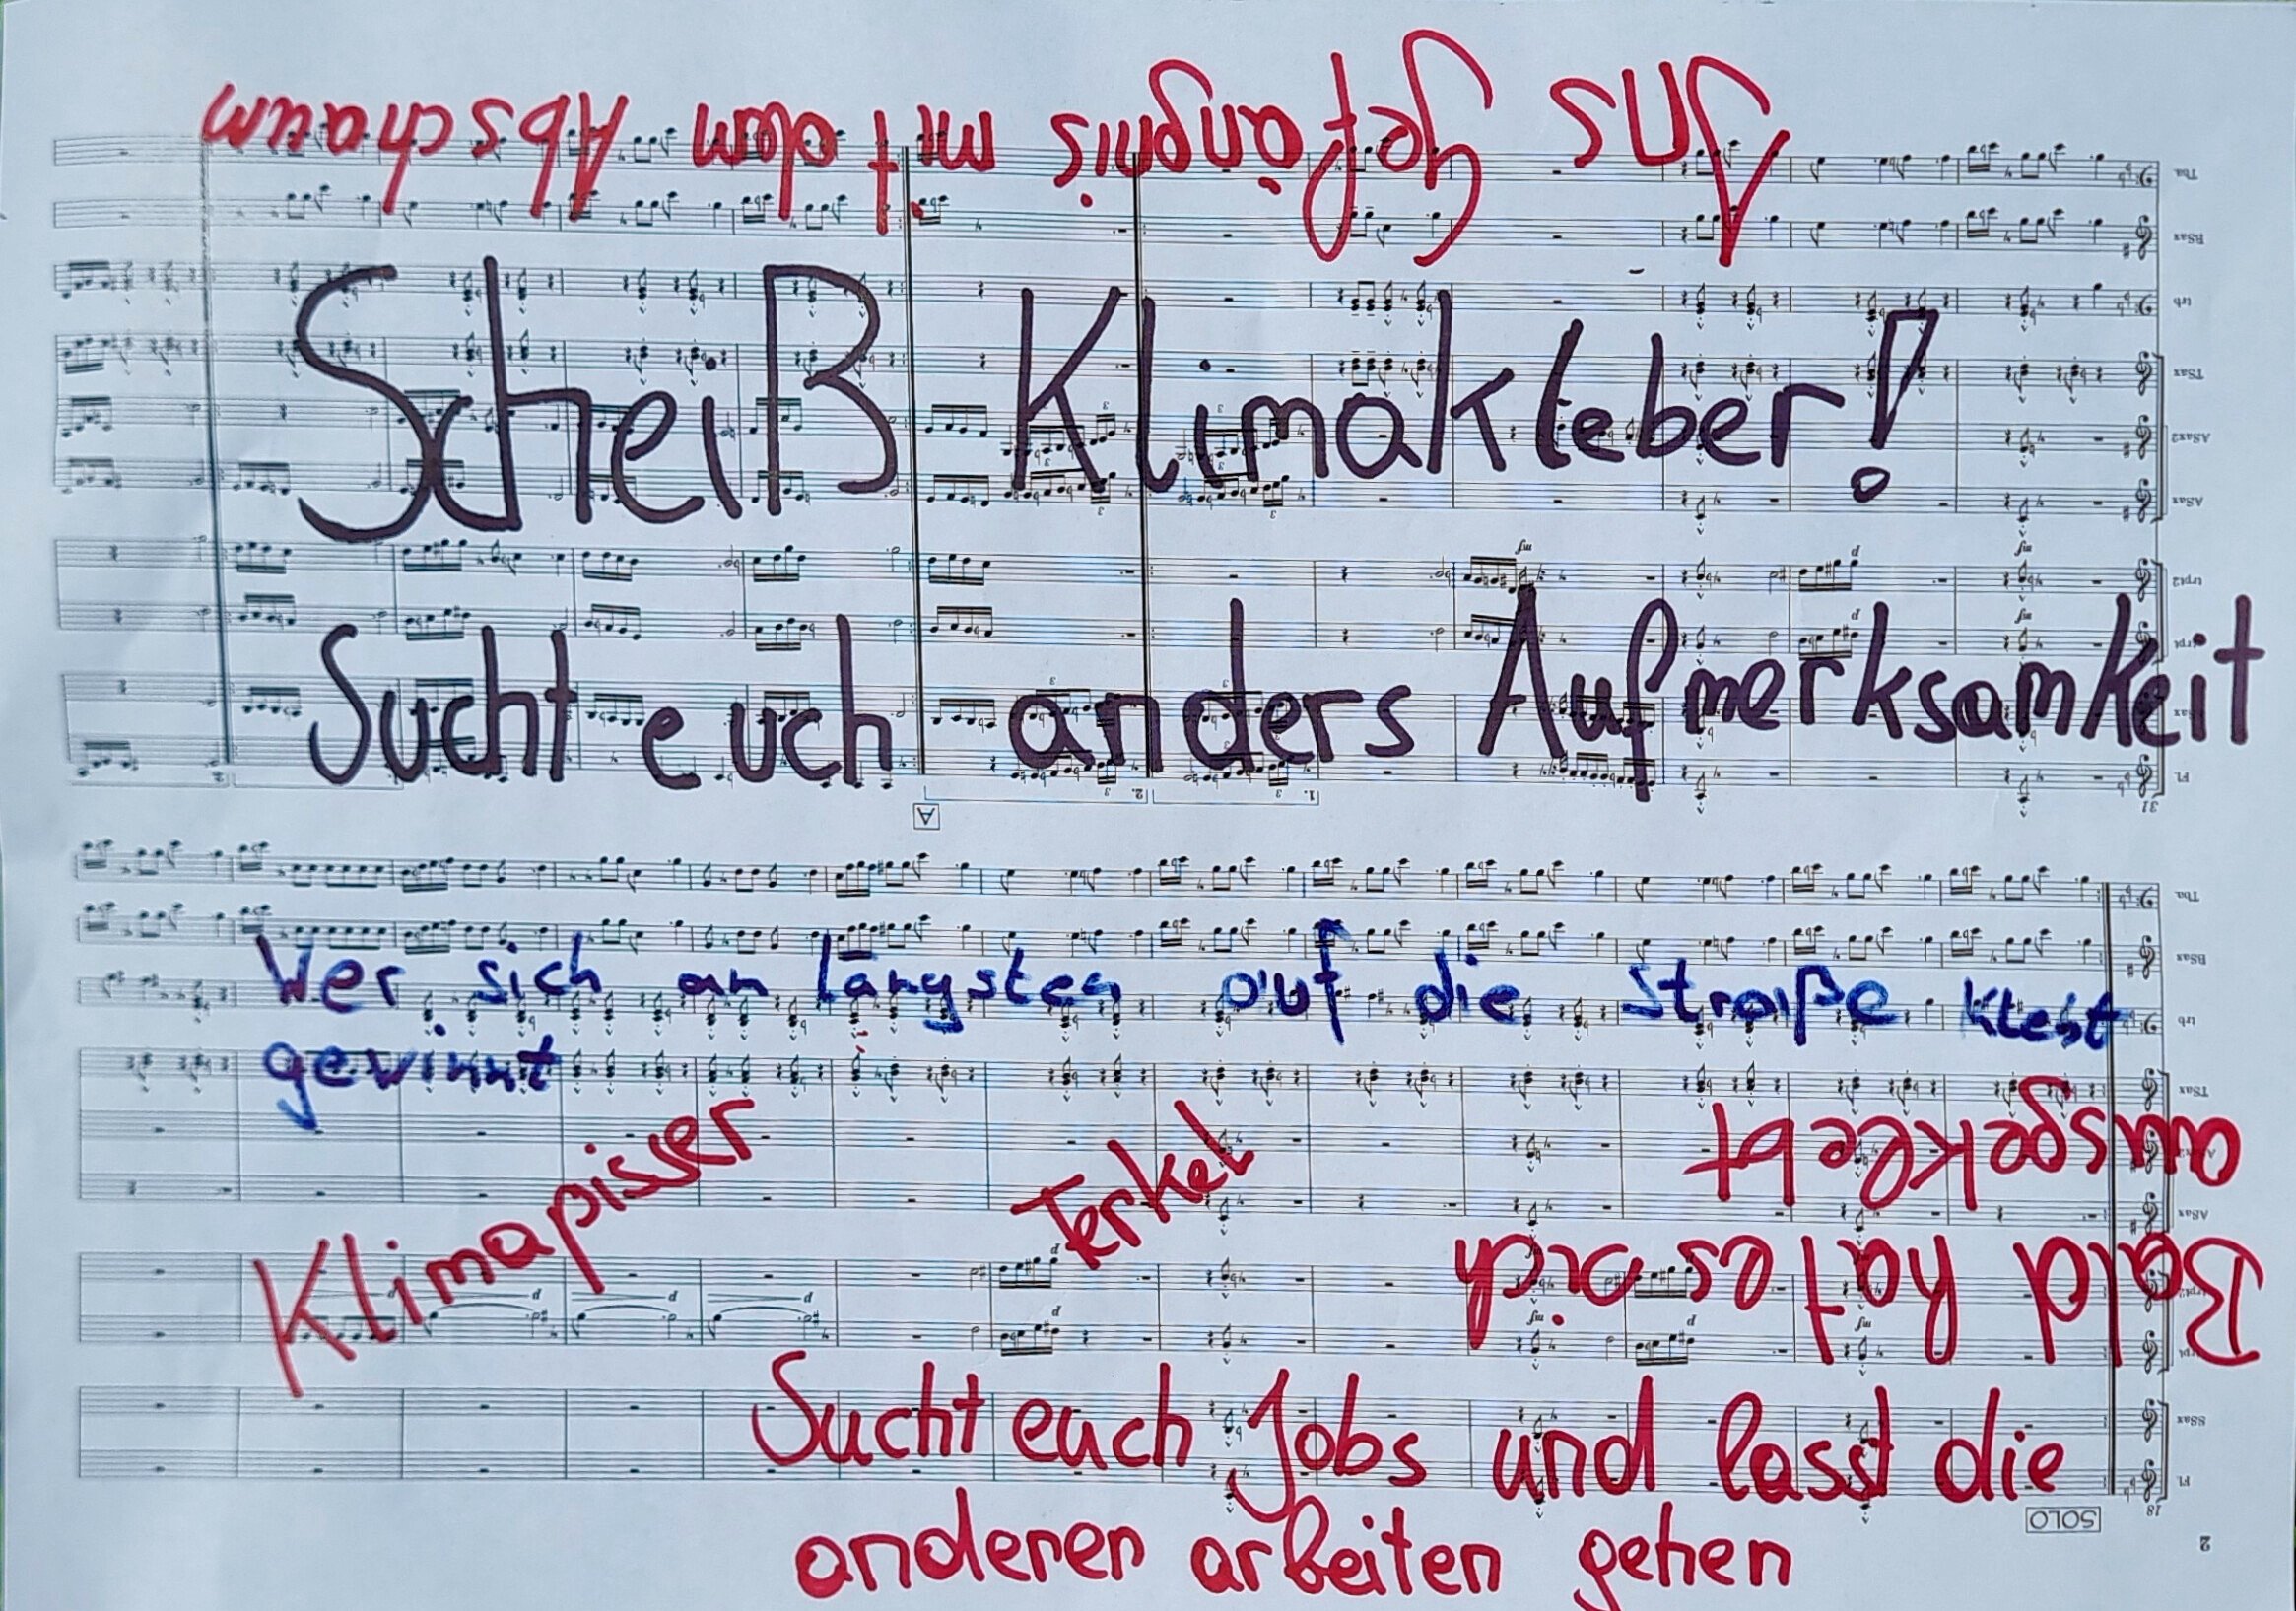 Ins gefängnis mit dem Abschaum
Scheiß Klimakleber!
Sucht euch anders Aufmerksamkeit
Wer sich am längsten auf die Straße klebt
gewinnt
Klimapisser
Ferkel
Bald hat es dich
ausgeklebt
Sucht euch Jobs und lasst die
anderen arbeiten gehen
Tba
BSax
trb
TSax
ASax2
ASax
trpt2
trpt
SSax
Fl
31
A
1.
2.
Tba
BSax
trb
TSax
ASax
trpt2
trpt
SSax
Fl
18
SOLO
2